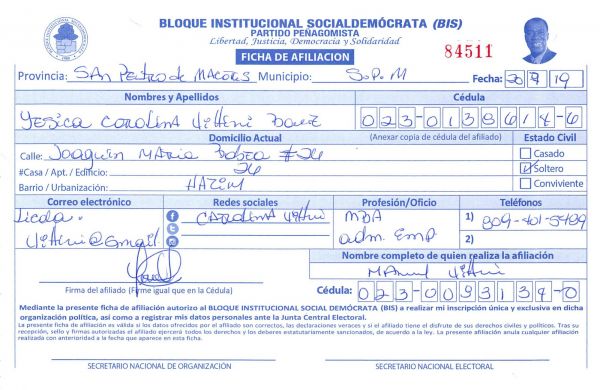 BLOQUE INSTITUCIONAL SOCIALDEMÓCRATA (BIS)
PARTIDO PEÑAGOMISTA
Libertad, Justicia, Democracia y Solidaridad
FICHA DE AFILIACION
84511
Provincia: SAN Pedro de MACORIS Municipio: S.P.M Fecha: 20 7 19
Nombres y Apellidos Cédula
YESICA CAROLINA Vitteni Baez 023-0138614-6
Domicilio Actual (Anexar copia de cédula del afiliado) Estado Civil
Calle: Joaquin MARIA #26 Casado
#Casa / Apt. / Edificio: 26 Soltero
Barrio / Urbanización: HAZIM Conviviente
Correo electrónico Redes sociales Profesión/Oficio Teléfonos
CAROLINA Vitteni 1) 809-401-5489
Vitteni@Gmail. adm. Emp 2)
Nombre completo de quien realiza la afiliación
Manuel Vitteni
Firma del afiliado (Firme igual que en la Cédula) Cédula: 023-0093134-0
Mediante la presente ficha de afiliación autorizo al BLOQUE INSTITUCIONAL SOCIAL DEMÓCRATA (BIS) a realizar mi inscripción única y exclusiva en dicha
organización política, así como a registrar mis datos personales ante la Junta Central Electoral.
La presente ficha de afiliación es válida si los datos ofrecidos por el afiliado son correctos, las declaraciones veraces y si el afiliado tiene el disfrute de sus derechos civiles y políticos. Tras su
recepción, sello y firmas autorizadas el afiliado ejercerá todos los derechos y los deberes estatutariamente sancionados, de acuerdo a la ley. La presente afiliación anula cualquier afiliación
realizada con anterioridad a la fecha que aparece en esta ficha.
SECRETARIO NACIONAL DE ORGANIZACIÓN SECRETARIO NACIONAL ELECTORAL